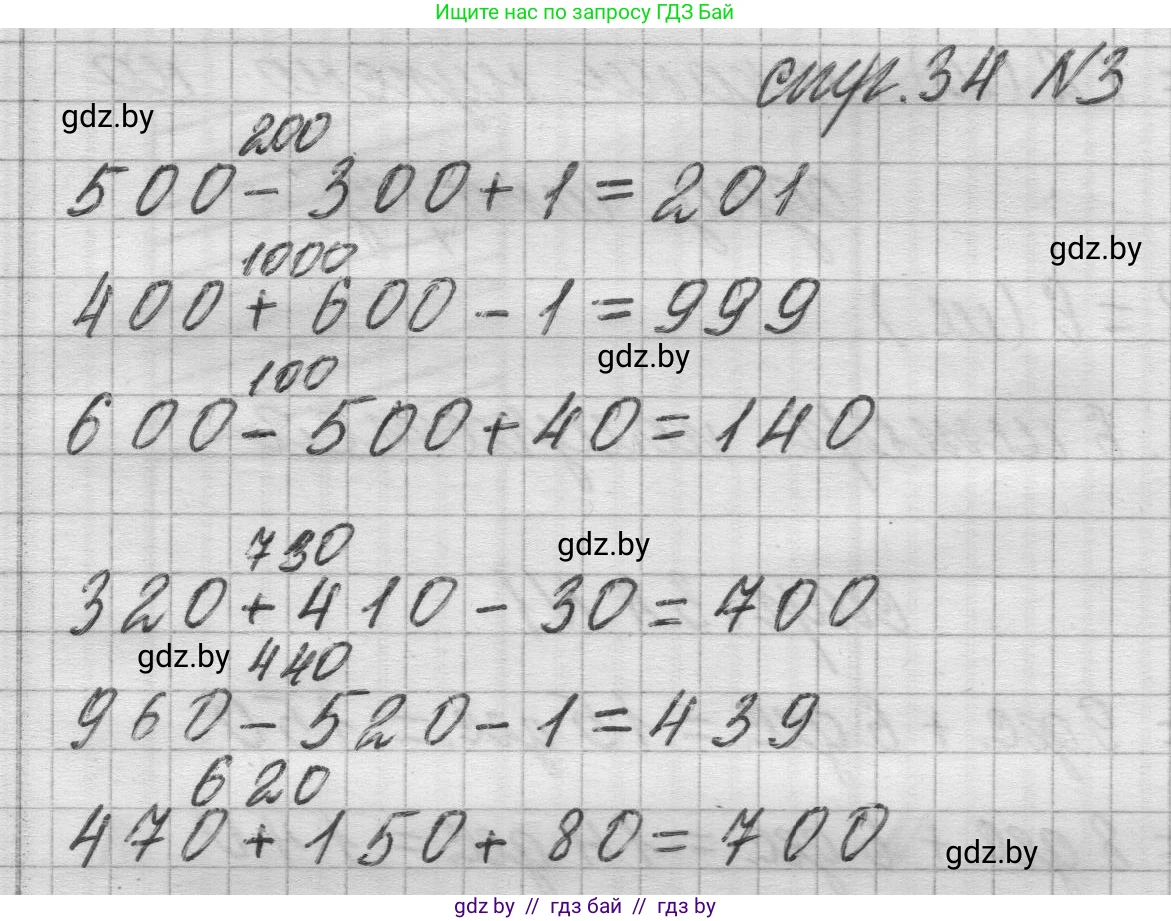 Ищите нас по запросу ГДЗ Бай
стр. 34 №3
gdz.by
200
500 - 300 + 1 = 201
gdz.by
1000
400 + 600 - 1 = 999
gdz.by
100
600 - 500 + 40 = 140
gdz.by
730
320 + 410 - 30 = 700
gdz.by
440
960 - 520 - 1 = 439
620
470 + 150 + 80 = 700
gdz.by
gdz by // гдз бай // гдз by